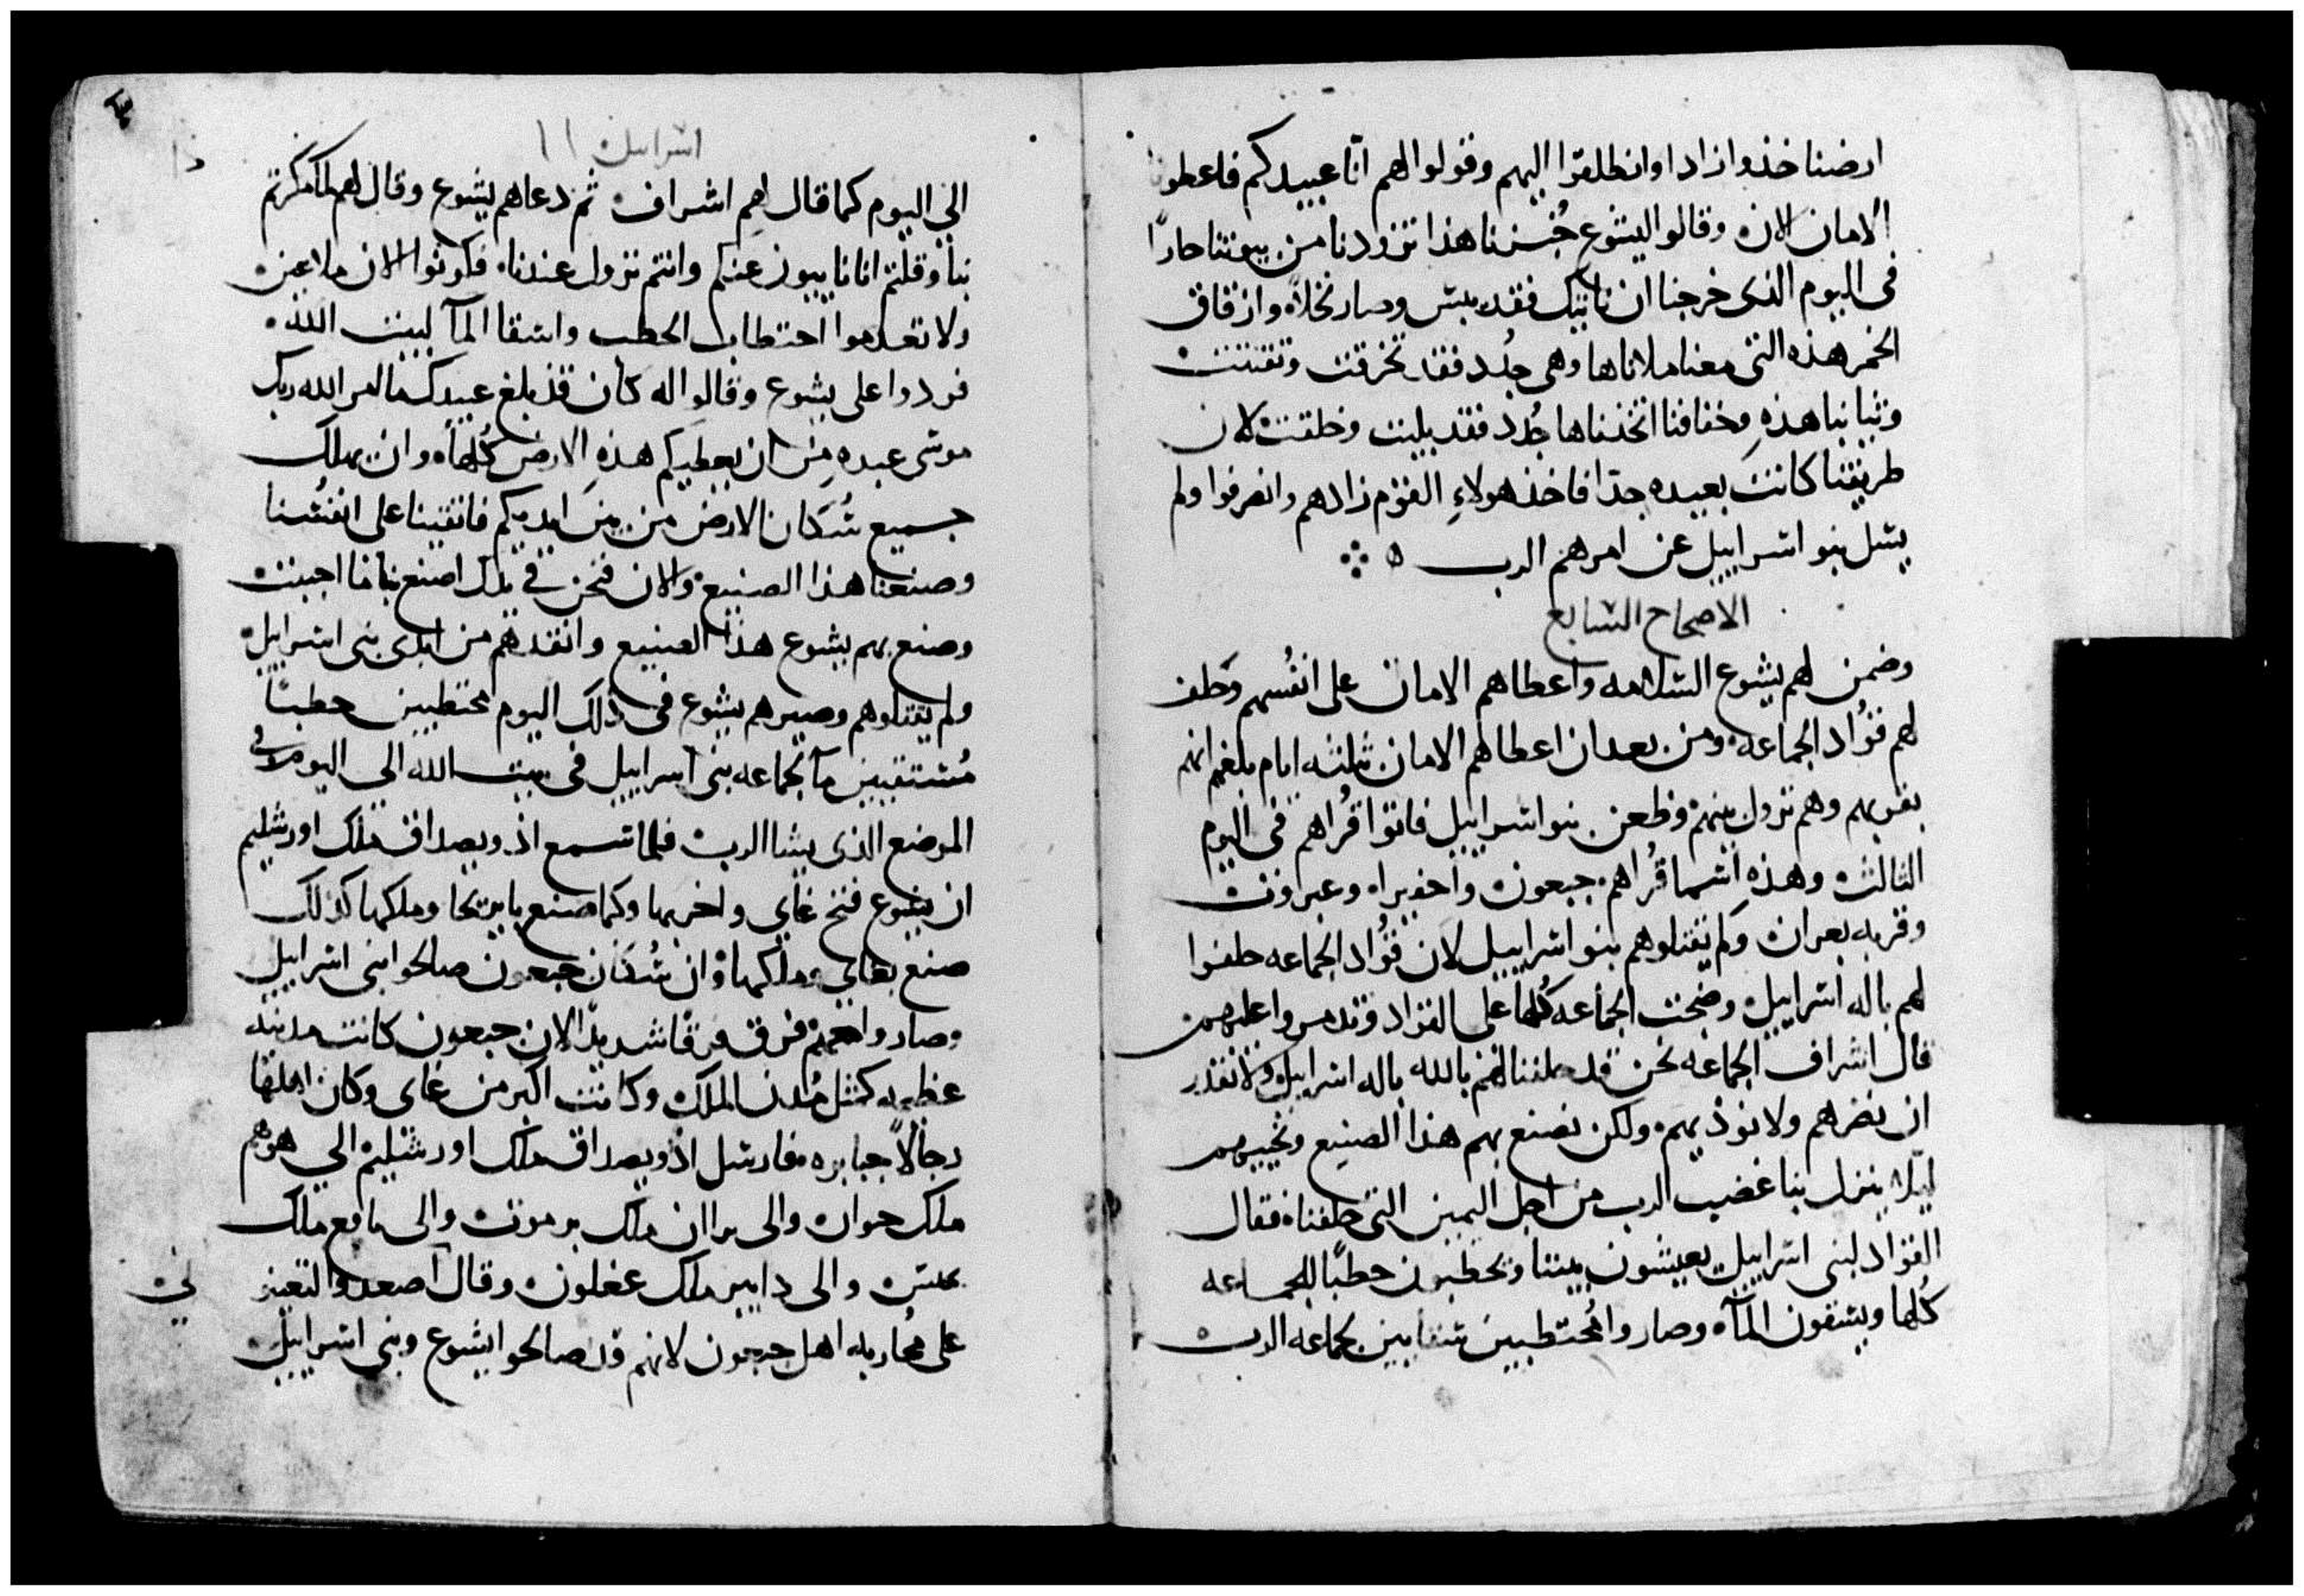 ارضنا خذوا زادا وانطلقوا اليهم وقولوا لهم انّا عبيدكم فاعطونا
الامان الان وقالوا ليشوع خُبزنا هذا تزودنا من بيوتنا حارًا
فى اليوم الذى خرجنا ان ناتيك فقد يبس وصار نخلاً وازقاق
الخمر هذه التى معنا ملاناها وهى جُدد فقد تخرقت وتفتتت
وثيابنا هذهِ وخفافنا اتخذناها جُدد فقد بليت وخلقت لان
طريقنا كانت بعيده جدّا فاخذ هولاءِ القوم زادهم وانصرفوا ولم
يسل بنو اسراييل عن امرهم الرب
الاصحاح السابع
وضمن لهم يشوع السلامه واعطاهم الامان على انفُسهم وحلف
لهم قوُّاد الجماعه ومن بعد ان اعطاهم الامان ثلثه ايام بلغهم انهم
بقربهم وهم نزول بينهم وظعن بنو اسراييل فاتوا قُراهم فى اليوم
الثالث وهذهِ اسما قُراهم جبعون واحفيرا وعبراوت
وقريه بعران ولم يقتلوهم بنو اسراييل لان قوُّاد الجماعه حلفوا
لهم باله اسراييل وضجت الجماعه كُلها على القواد وتدمروا عليهم
قال اشراف الجماعه نحن قد حلفنا لهم بالله باله اسراييل ولا نقدر
ان نضرهم ولا نوذيهم ولكن نصنع بهم هذا الصنيع ونحييهم
ليلا ينزل بنا غضب الرب من اجل اليمين التى حلفنا فقال
القواد لبنى اسراييل يعيشون بيننا ويحطبون حطبًا للجماعه
كُلها ويسقون المآ وصاروا مُحتطبين سقايين لجماعه الرب
اسراييل ١١
الى اليوم كما قال لهم اشراف ثم دعاهم يشوع وقال لهم لما مكرتم
بنا وقلتم اننا نايبون عنكم وانتم نزول عندنا فكونوا الان ملاعين
ولا تعدموا احتطاب الحطب واسقا المآ لبيت الله
فردوا على يشوع وقالوا له كان قد بلغ عبيدك ما امر الله ربك
موسى عبده من ان يعطيكم هذهِ الارض كُلها وان يهلك
جميع سُكان الارض من بين ايديكم فاتقينا على انفُسنا
وصنعنا هذا الصنيع والان فنحن فى يدك اصنع بنا ما احببت
وصنع بهم يشوع هذا الصنيع وانقدهم من ايدى بنى اسراييل
ولم يقتلوهم وصيرهم يشوع فى ذلك اليوم محتطبين حطبًا
مُستقيين مآ لجماعه بنى اسراييل فى بيت الله الى اليوم وفى
الموضع الذى يشا الرب فلما سمع ادونيصداق ملك اورشليم
ان يشوع فتح غاى واخربها وكما صنع باريحا وملكها كذلك
صنع بغاى وملكها وان سُكان جبعون صالحوا بنى اسراييل
وصاروا معهم فرق فرقا شديدًا لان جبعون كانت مدينه
عظيمه كمثل مُدن الملك وكانت اكبر من غاى وكان اهلها
رجالاً جبابره فارسل ادونيصداق ملك اورشليم الى هوهم
ملك حوان والى براان ملك يرموت والى يافع ملك
والى دابير ملك عغلون وقال اصعدوا لتعينونى
على مُحاربه اهل جبعون لانهم قد صالحوا يشوع وبنى اسراييل